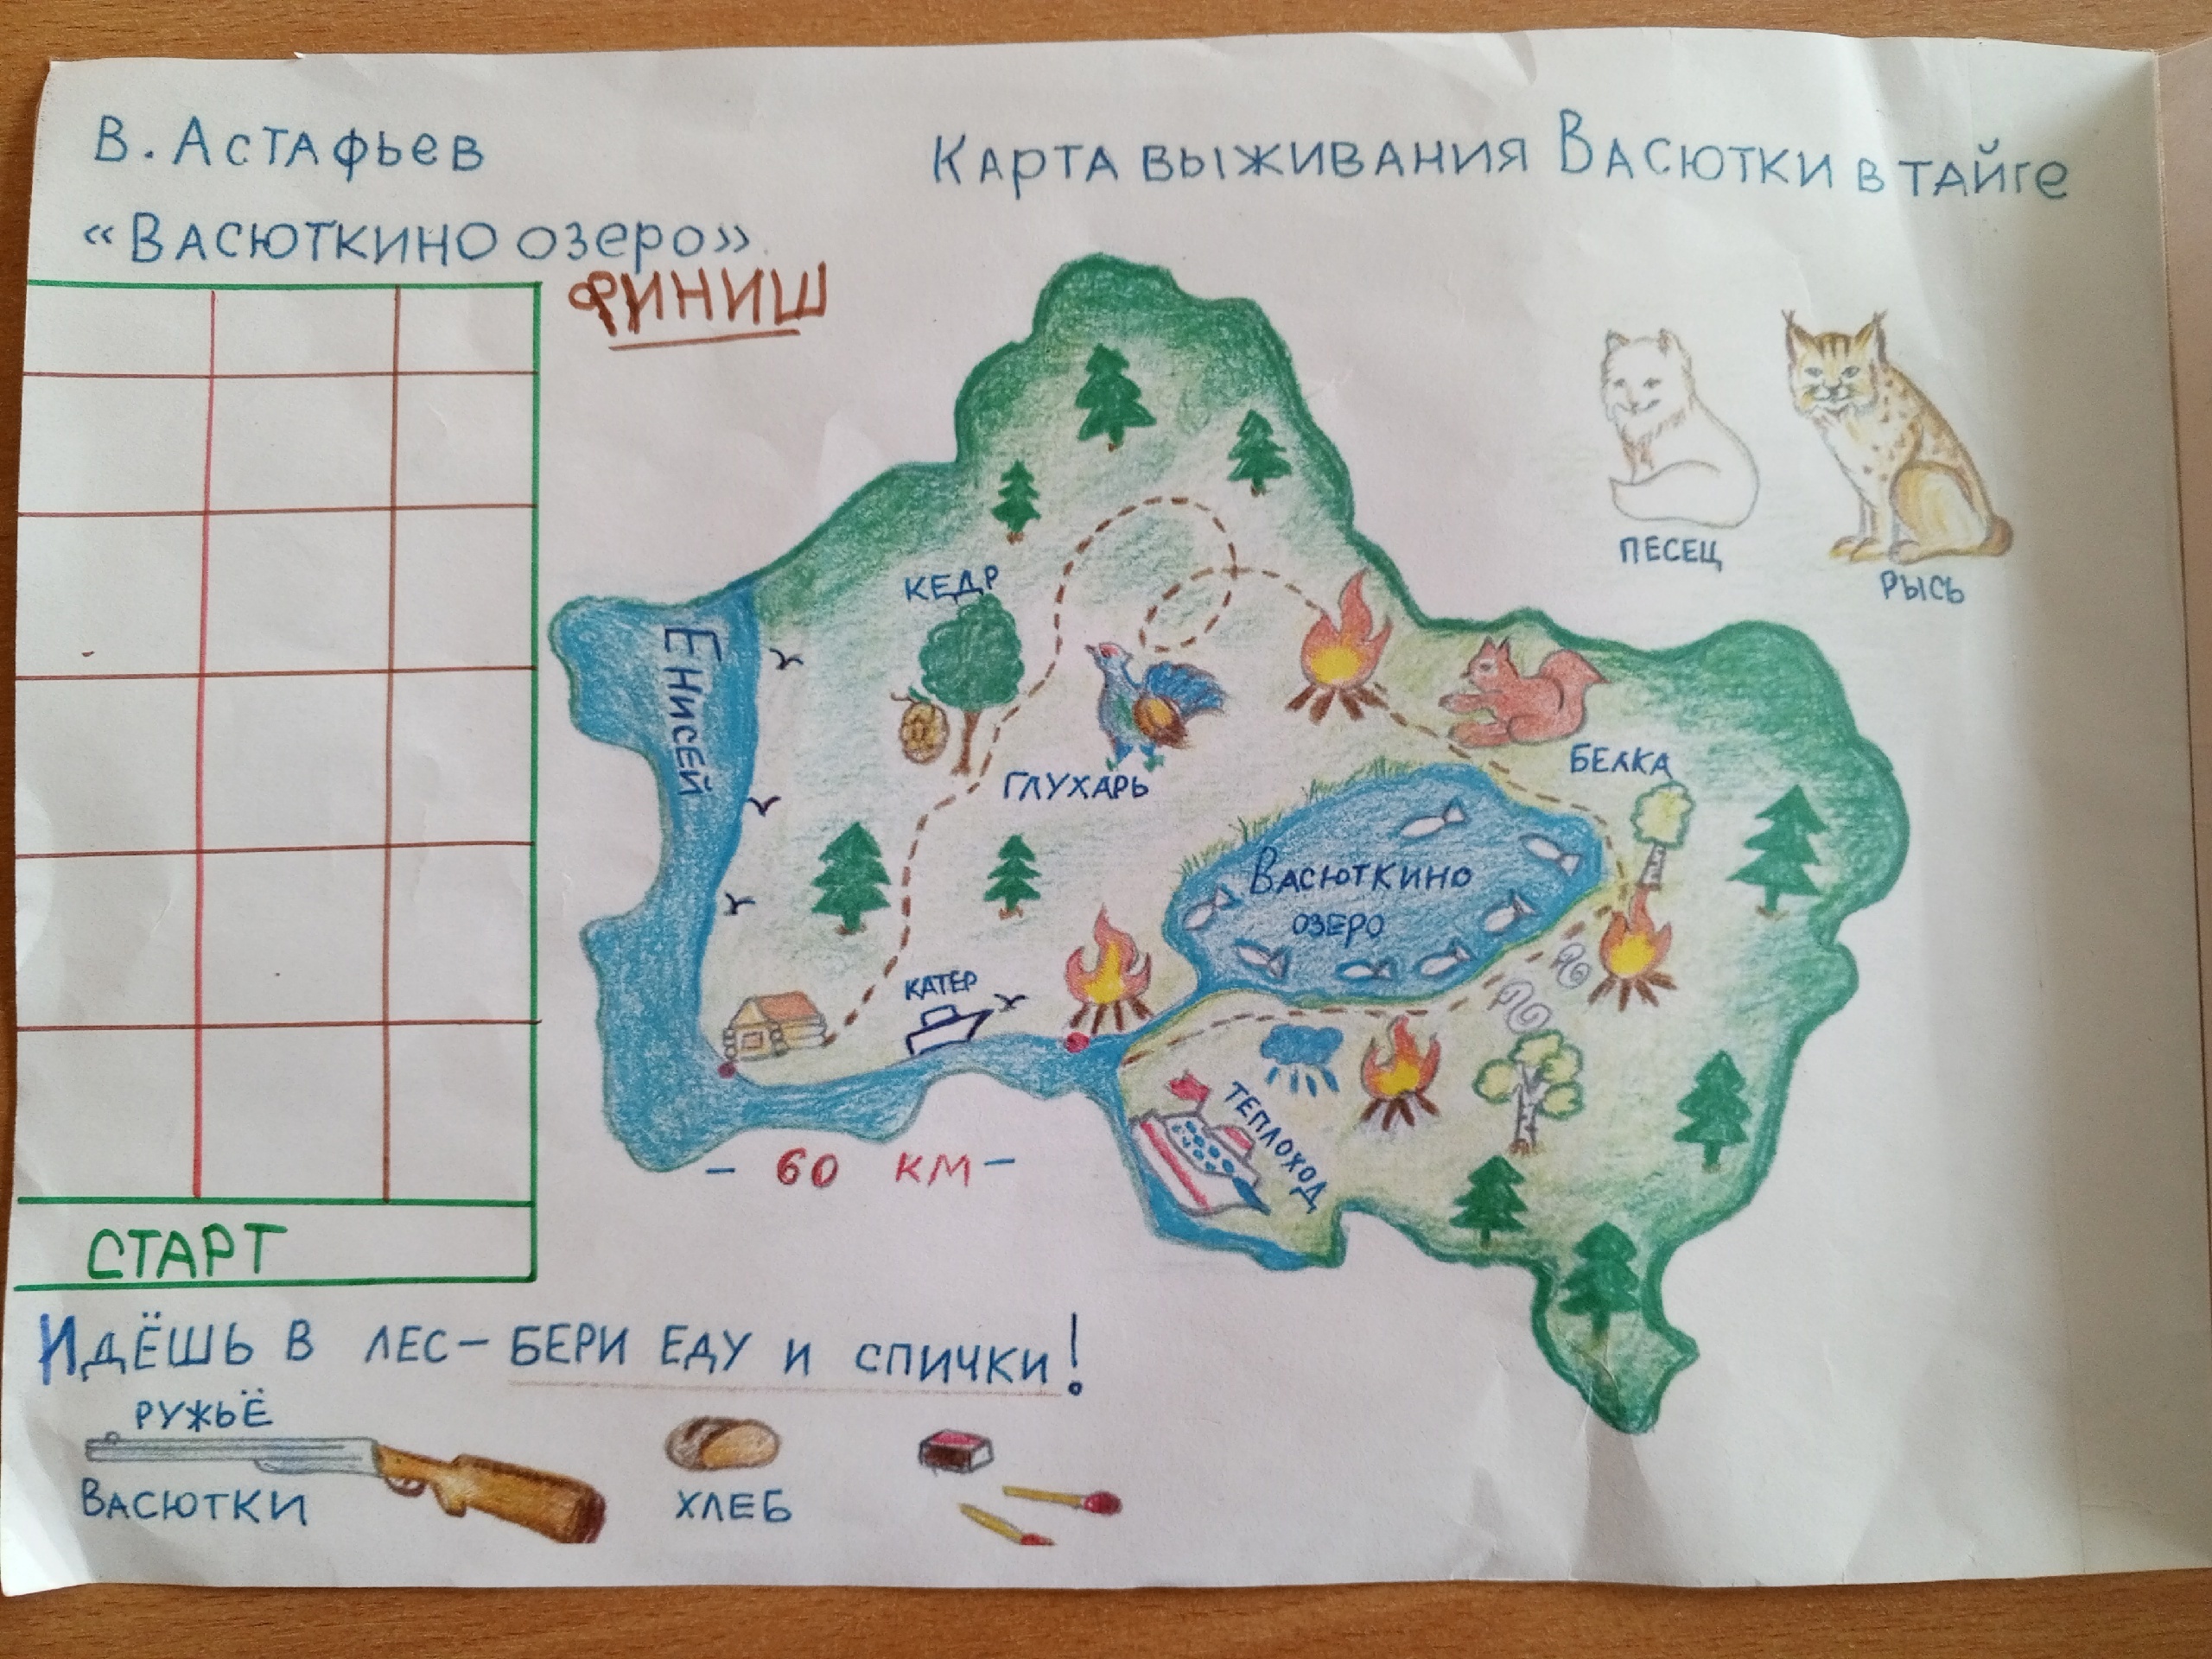 В. Астафьев
«Васюткино озеро»
Карта выживания Васютки в тайге
ФИНИШ
ПЕСЕЦ
РЫСЬ
КЕДР
Енисей
ГЛУХАРЬ
БЕЛКА
Васюткино
озеро
КАТЕР
ТЕПЛОХОД
- 60 КМ -
СТАРТ
Идёшь в лес - бери еду и спички!
РУЖЬЁ
ВАСЮТКИ
ХЛЕБ